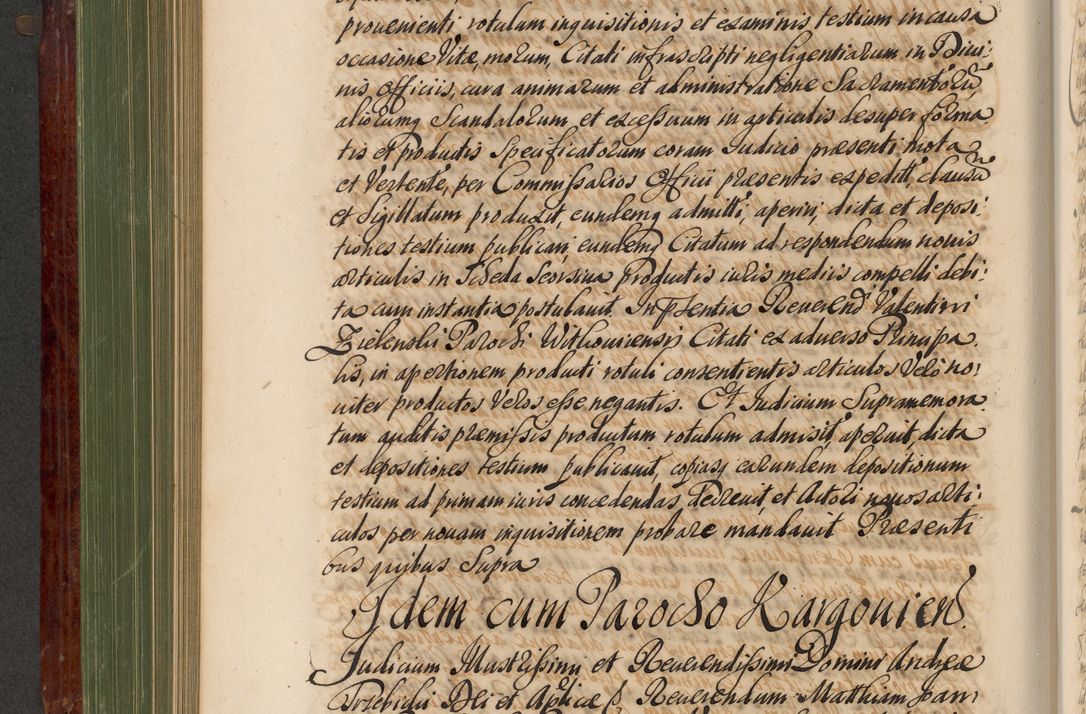 prouementi rotulum inquisitionis et examinis testium in causa
occasione Vitæ, morum, Citati infrascripti negligentiarum in Diui:
nis officiis, cura animarum et administratione Sacramentorũ,
aliorumq Scandalorum et excessuum in articulis desuper forma
tis et productis Specificatorum coram Iudicio præsenti mota
et Vertente, per Commissarios Officii præsentis expedit, clausũ
et Sigillatum produxit, eundemq admitti, aperiri, dicta et deposi:
tiones testium publicari, eundemq Citatum ad respondendum nouis
articulis in Scheda Seorsiua productis iuris mediis compelli debi:
ta cum instantia postulauit. In Pſentia Reuerend Valentini
Zielenski Parochi Witkouiensis Citati ex aduerso Principa
lis, in apertionem producti rotuli consentientis articulos Vero no:
uiter productos Veros esse negantis. Et Iudicium Supramemora
tum auditis præmissis productum rotulum admisit, aperuit, dicta
et depositiones testium publicauit, copiasq earundem depositionum
testium ad primam iuris concedendas Decreuit, et Actori nouos arti:
culos per nouam inquisitionem probare mandauit Præsenti
bus quibus Supra
Idem cum Parocho Kargouien
Iudicium Illustrissimi et Reuerendissimi Domini Andreæ
Trzebicki Dei et Aplicæ S Reuerendum Matthiam Joan